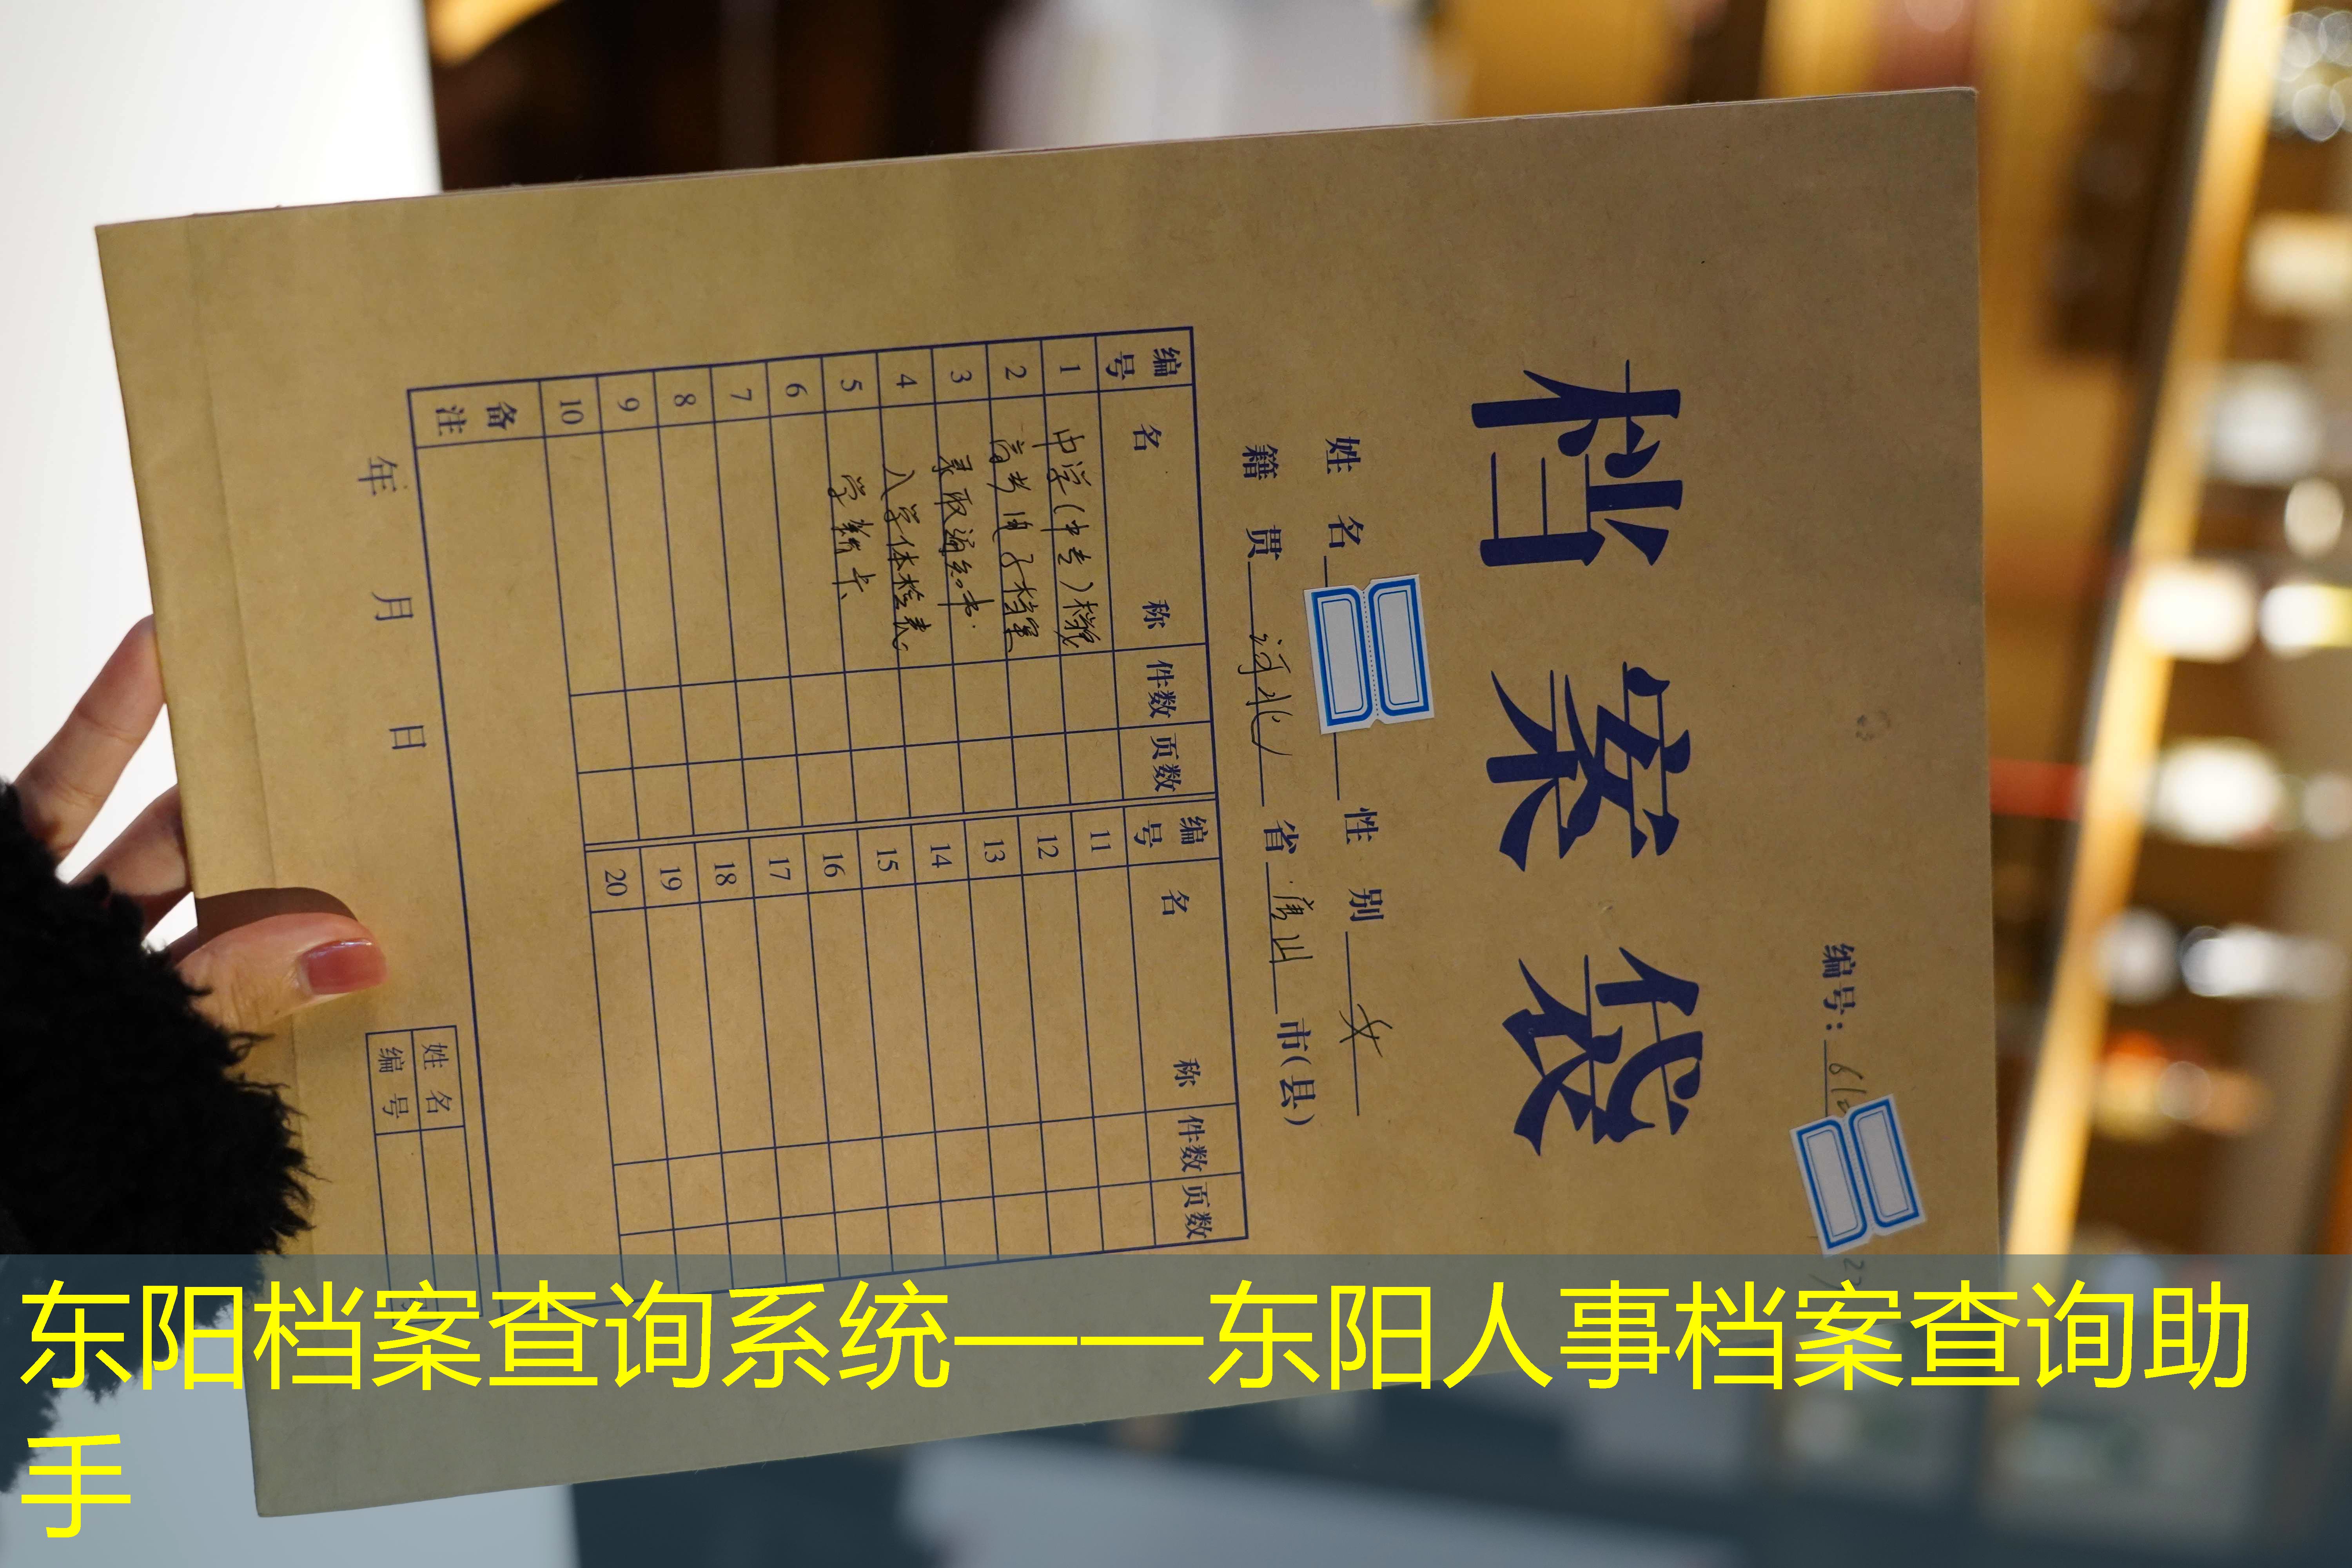 编号：
档案袋
姓名 性别 女
籍贯 河北 省 唐山 市(县)
编号 名称 件数 页数 编号 名称 件数 页数
1 中学(中专)档案 11
2 高考电子档案 12
3 录取通知书 13
4 入学体检表 14
5 学籍卡 15
6 16
7 17
8 18
9 19
10 20
备注
年 月 日
姓名
编号
东阳档案查询系统——东阳人事档案查询助
手